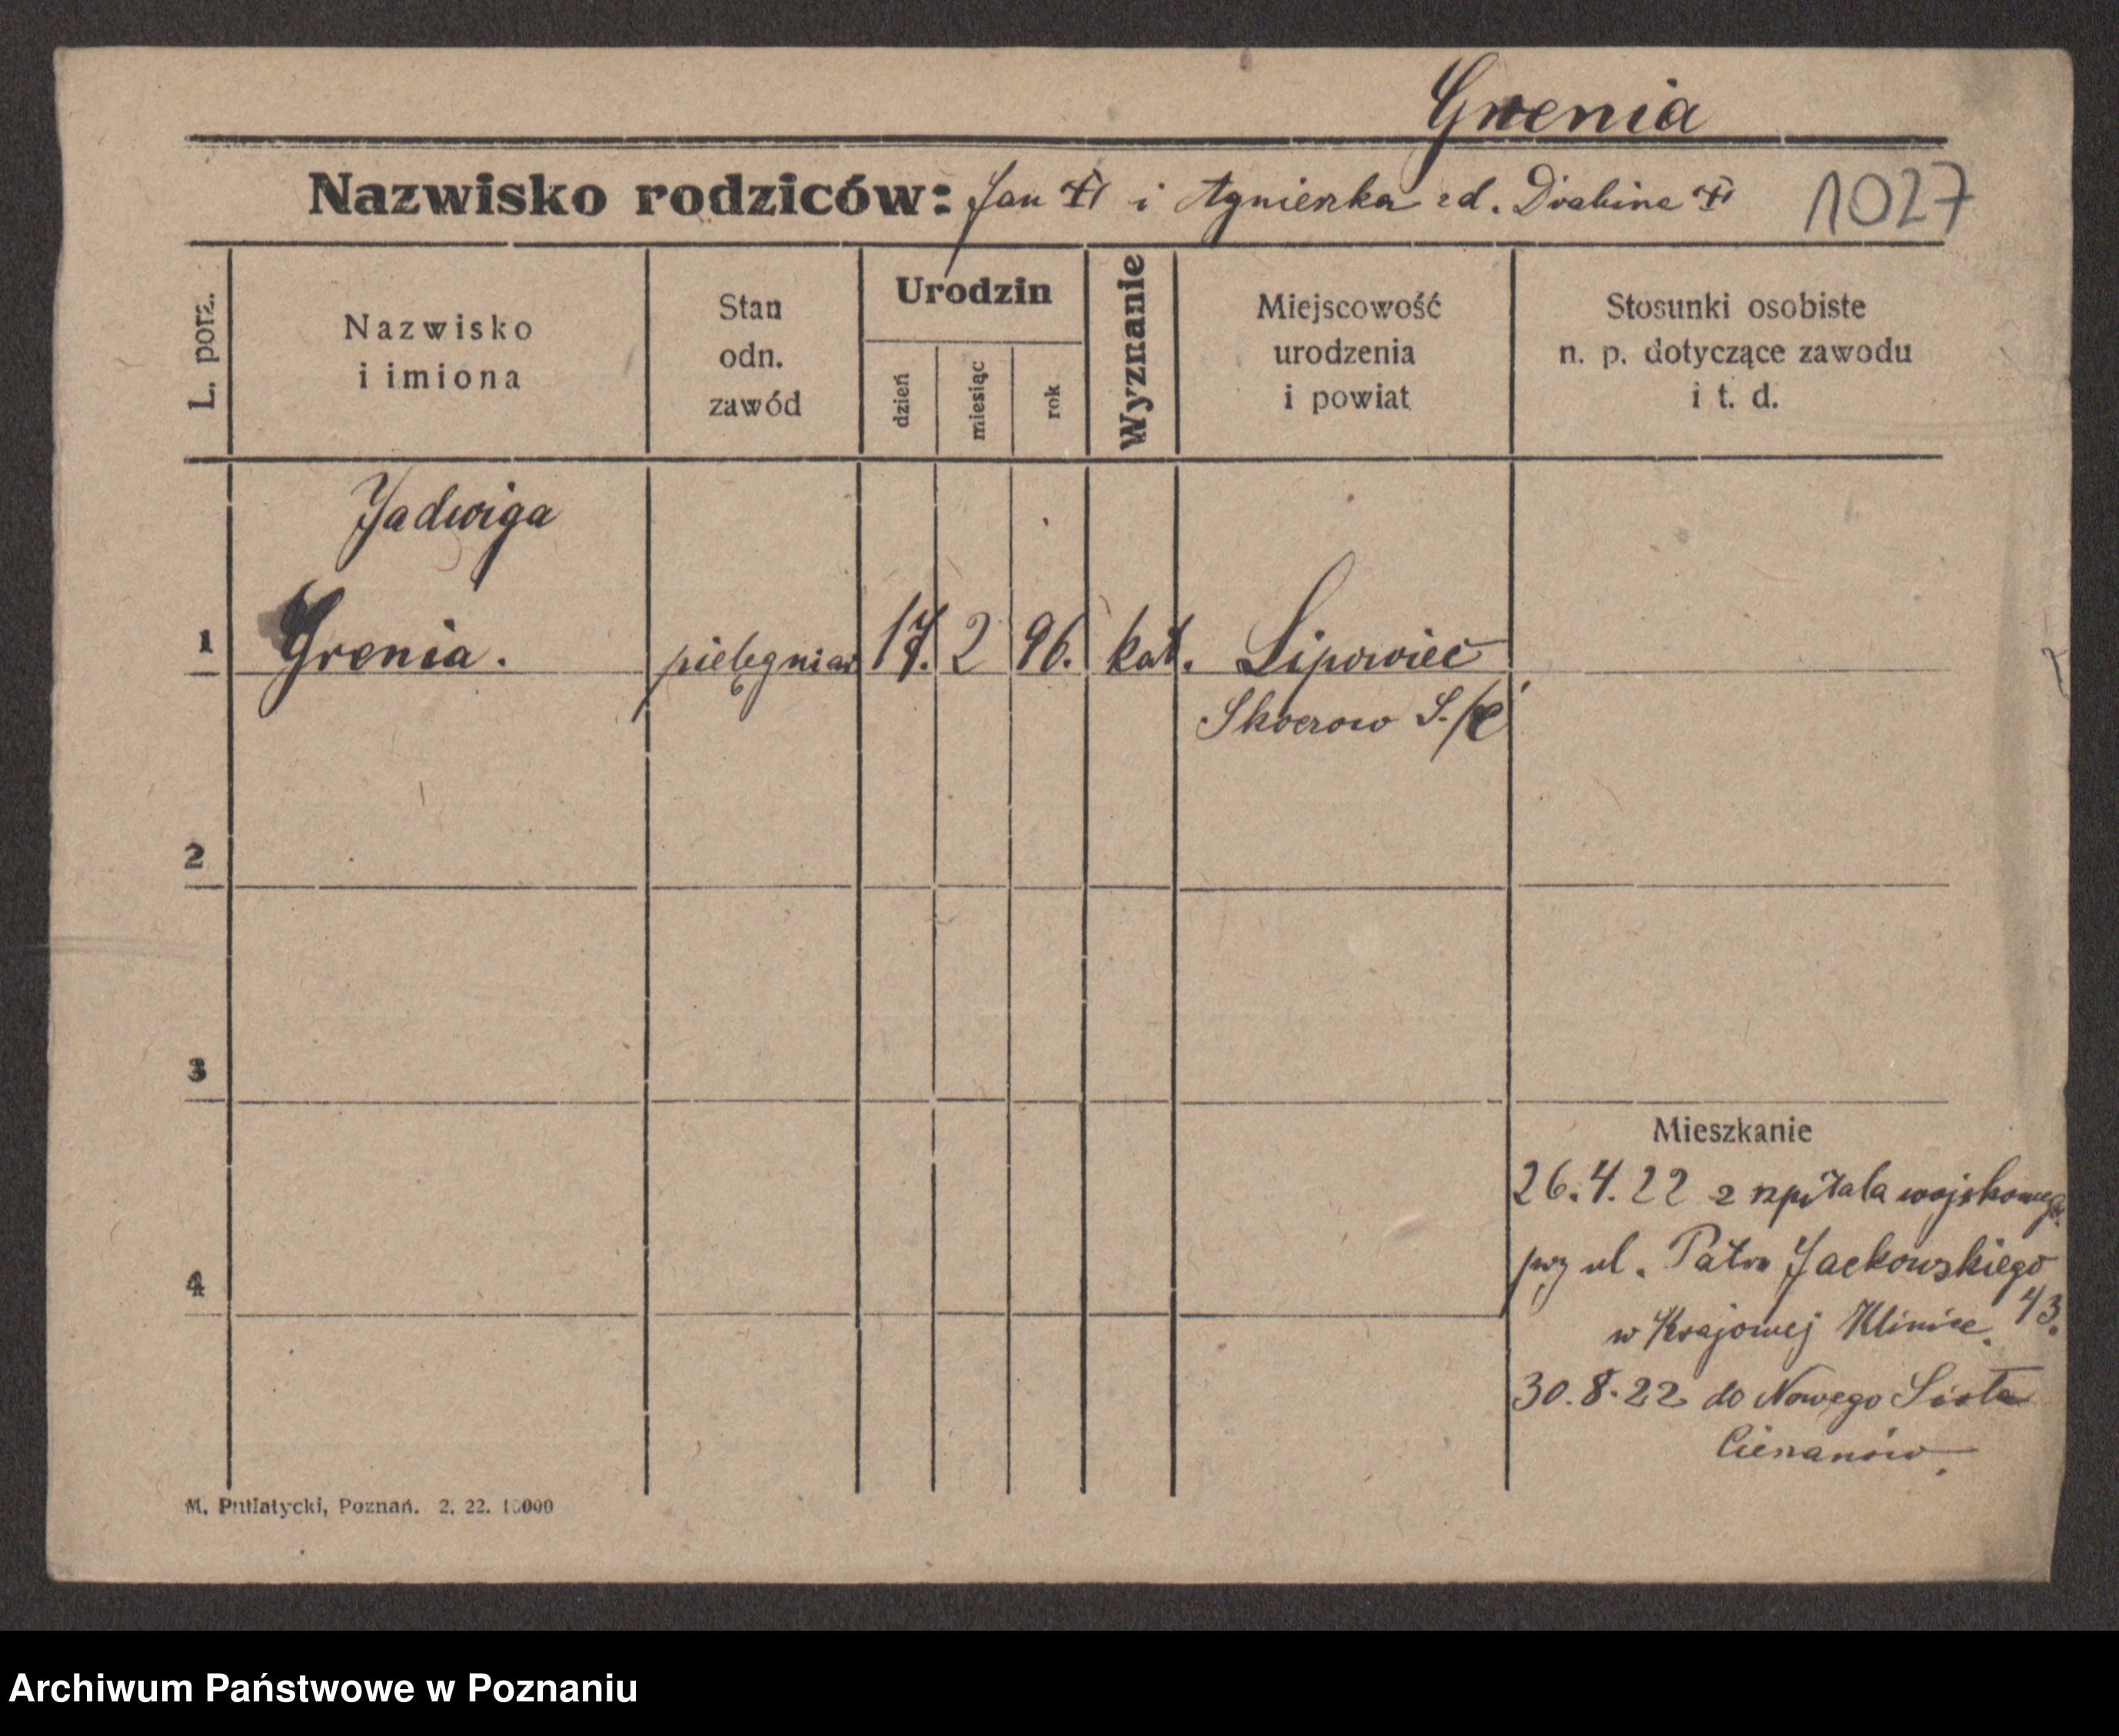 Grenia
Nazwisko rodziców: Jan i Agnieszka zd. Drabina
1027
L. porz.
Nazwisko
i imiona
Stan
odn.
zawód
Urodzin
dzień
miesiąc
rok
Wyznanie
Miejscowość
urodzenia
i powiat
Stosunki osobiste
n. p. dotyczące zawodu
i t. d.
Jadwiga
1 Grenia. pielęgniar 17. 2 96. kat. Lipowiec
2
3
4
Mieszkanie
26.4.22 z szpitala wojskowego
przy ul. Patr. Jackowskiego
43.
w Krajowej Klinice.
30.8.22 do Nowego Sioła
Cieszanów.
M. Putiatycki, Poznań. 2. 22. 10000
Archiwum Państwowe w Poznaniu